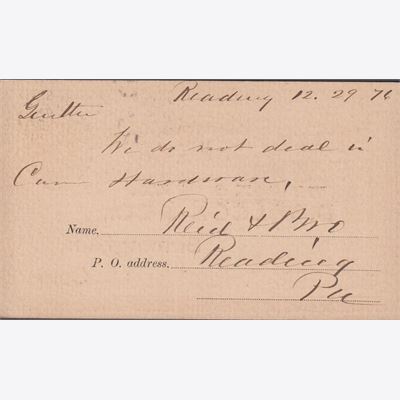 Reading 12. 29 76
Gentln
We do not deal in
Hardware,
Name. Reid & Bro
P. O. address. Reading
Pa